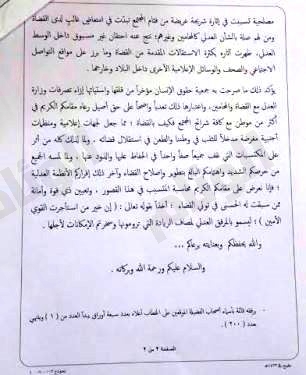 مصلحية تسببت في إثارة شريحة عريضة من فئام المجتمع تبدّت في استعداء غالب لدى القضاة
ومن لهم صلة بالشأن العدلي كالمحامين وغيرهم؛ نتج عنه احتقان غير مسبوق داخل الوسط
العدلي، ظهرت آثاره بكثرة الاستقالات المتقدمة من القضاة وما برز على مواقع التواصل
الاجتماعي والصحف والوسائل الإعلامية الأخرى داخل البلاد وخارجها.
يؤكد ذلك ما صرحت به جمعية حقوق الإنسان مؤخراً من قلقها واستيائها إزاء تصرفات وزارة
العدل مع القضاة والمحامين، واعتبارها ذلك تعدياً واضحاً على حق أصيل رعاه مقامكم الكريم في
أكثر من موطن مع كافة شرائح المجتمع فكيف بالقضاة؛ مما جعل لجهات إعلامية ومنظمات
أجنبية مغرضة مدخلاً للثلب في وطننا والطعن في استقلال قضائه. ولما لذلك كله من أثر
على المكتسبات التي نقف جميعاً صفاً واحداً في الحفاظ عليها والذود عنها. ولما لمسه الجميع
من حرصكم الشديد واهتمامكم البالغ بتطوير وإصلاح القضاء وآخر ذلك إقراركم الأنظمة العدلية
؛ فإنا نعرض على مقامكم الكريم محاسبة المتسبب في هذا القصور، وتعيين ذي قوة وأمانة
ممن سبقت له الحسنى في تولي القضاء؛ أخذاً بقوله تعالى: (إن خير من استأجرت القوي
الأمين)؛ ليسمو بالمرفق العدلي لمصاف الريادة التي ترومونها وسخرتم الإمكانات لأجلها.
والله يحفظكم وبعنايته يرعاكم...
والسلام عليكم ورحمة الله وبركاته.
برفقه قائمة بأسماء أصحاب الفضيلة الموقعين على الخطاب أعلاه بعدد سبعة أوراق يبدأ العدد من (١) وينتهي
بعدد (٢٠٠).
الصفحة ٢ من ٢